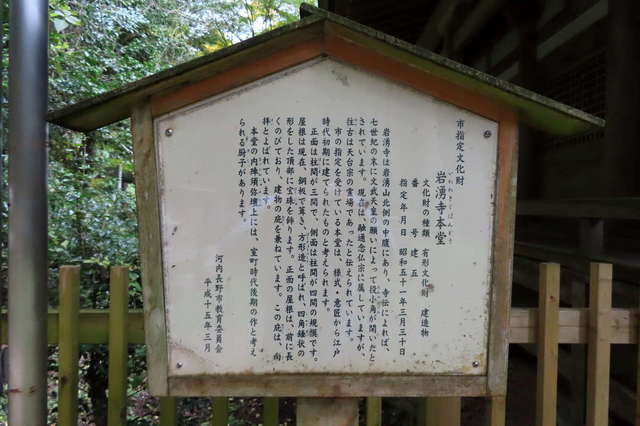 市指定文化財
岩湧寺本堂
いわわきじほんどう
文化財の種類 有形文化財 建造物
番号 建五
指定年月日 昭和五十一年三月三十日
岩湧寺は岩湧山北側の中腹にあり、寺伝によれば、
七世紀の末に文武天皇の願いによって役小角が開いたと
されています。現在は、融通念仏宗に属していますが、
往古は天台宗の霊場であったと伝えられています。
市の指定を受けている本堂は、様式・意匠から江戸
時代初期に建てられたものと考えられます。
正面は柱間が三間で、側面は柱間が四間の規模です。
屋根は現在、銅板で葺き、方形造と呼ばれ、四角錐状の
形をした頂部に宝珠を飾ります。正面の屋根は、前に長
くのびており、建物の庇を兼ねています。この庇は、向
拝とよばれています。
本堂の内陣須弥壇上には、室町時代後期の作と考え
られる厨子があります。
河内長野市教育委員会
平成十五年三月